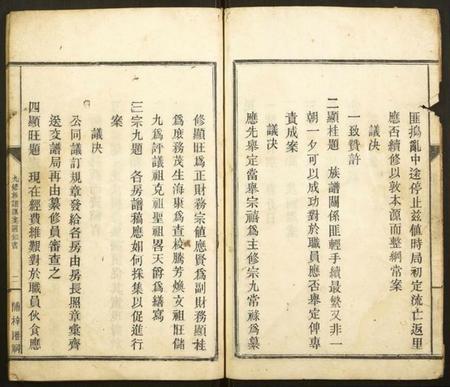 匪搗亂中途停止茲值時局初定流亡返里
應否續修以敦本源而整綱常案
議决
一致贊許
二顯桂題　族譜關係匪輕手續最繁又非一
朝一夕可以成功對於職員應否舉定俾專
責成案
議决
應先舉定當舉宗禧爲主修宗九常祿爲纂
修顯旺爲正財務宗値應賢爲副財務顯桂
爲庶務茂生海東爲查校騰芳煥文祖旺儲
九爲評議祖克祖聖祖畧天爵爲繕寫
三宗九題　各房譜稿應如何採集以促進行
案
議决
公同議訂規章發給各房由房長照章彙齊
送交譜局再由纂修員審查之
四顯旺題　現在經費維艱對於職員伙食應
九修族譜
二